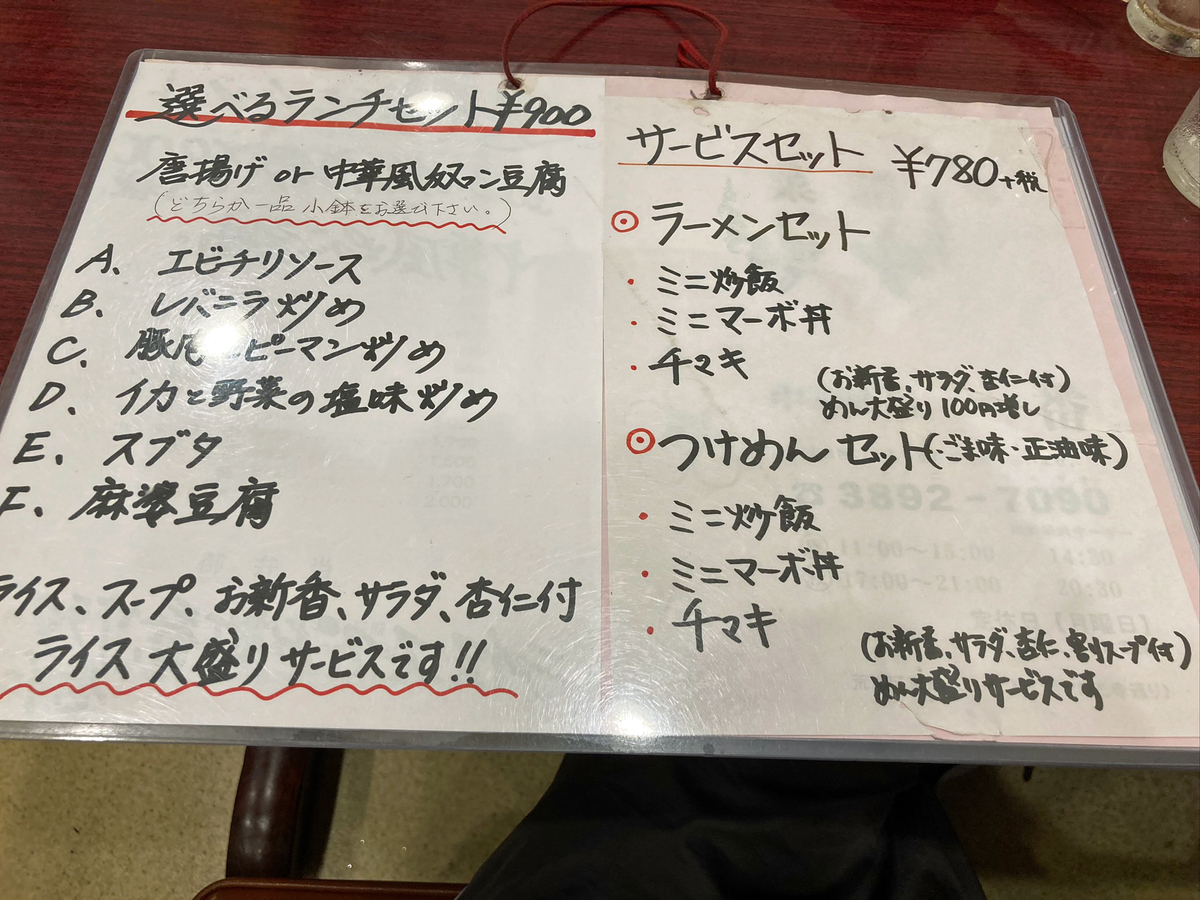 選べるランチセット ¥900
唐揚げ or 中華風奴マン豆腐
(どちらか一品 小鉢をお選び下さい。)
A. エビチリソース
B. レバニラ炒め
C. 豚肉 ピーマン炒め
D. イカと野菜の塩味炒め
E. スブタ
F. 麻婆豆腐
ライス、スープ、お新香、サラダ、杏仁付
ライス大盛りサービスです!!
サービスセット ¥780+税
◉ ラーメンセット
・ミニ炒飯
・ミニマーボ丼
・チマキ
(お新香、サラダ、杏仁付)
めん大盛り 100円増し
◉ つけめんセット(・ごま味・正油味)
・ミニ炒飯
・ミニマーボ丼
・チマキ
(お新香、サラダ、杏仁、割りスープ付)
めん大盛りサービスです
3892-7090
11:00〜15:00 14:30
17:00〜21:00 20:30
定休日【日曜日】